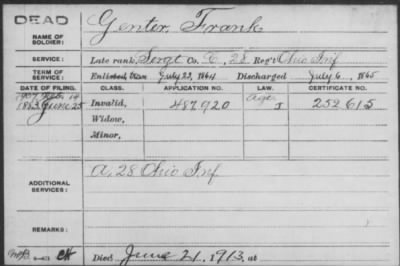 DEAD
NAME OF SOLDIER: Genter, Frank
SERVICE: Late rank, Sergt Co. C, 28 Reg't Ohio Inf
TERM OF SERVICE: Enlisted July 23, 1864 Discharged July 6, 1865
DATE OF FILING. CLASS. APPLICATION NO. LAW. CERTIFICATE NO.
1907 Feb. 14 Age
1883 June 25 Invalid, 487920 J 252615
Widow,
Minor,
ADDITIONAL SERVICES: A, 28 Ohio Inf.
REMARKS:
Died June 21, 1913, at